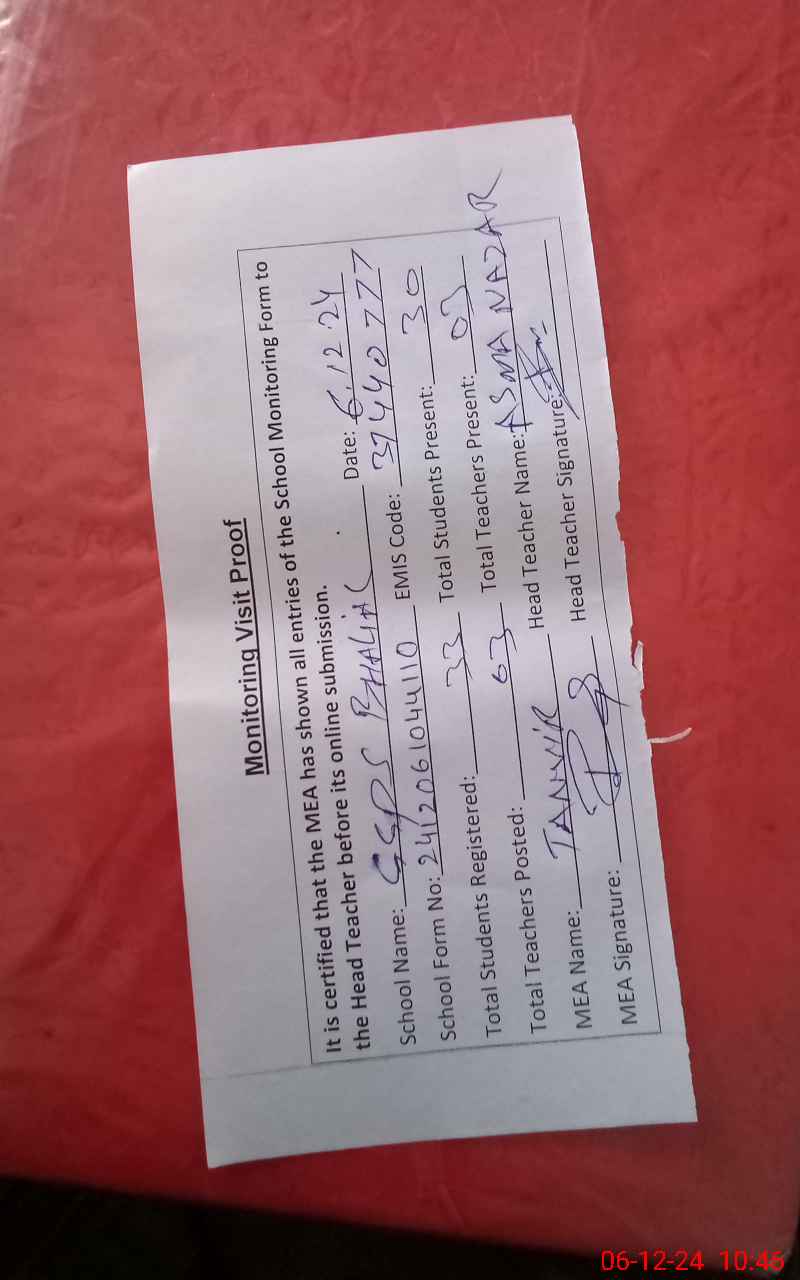 Monitoring Visit Proof
It is certified that the MEA has shown all entries of the School Monitoring Form to
the Head Teacher before its online submission.
School Name: GGPS BHALIAL Date: 6.12.24
School Form No: 241206104410 EMIS Code: 37440777
Total Students Registered: 33 Total Students Present: 30
Total Teachers Posted: 03 Total Teachers Present: 03
MEA Name: TANVIR Head Teacher Name: ASMA NAZAR
MEA Signature: Head Teacher Signature:
06-12-24 10:46